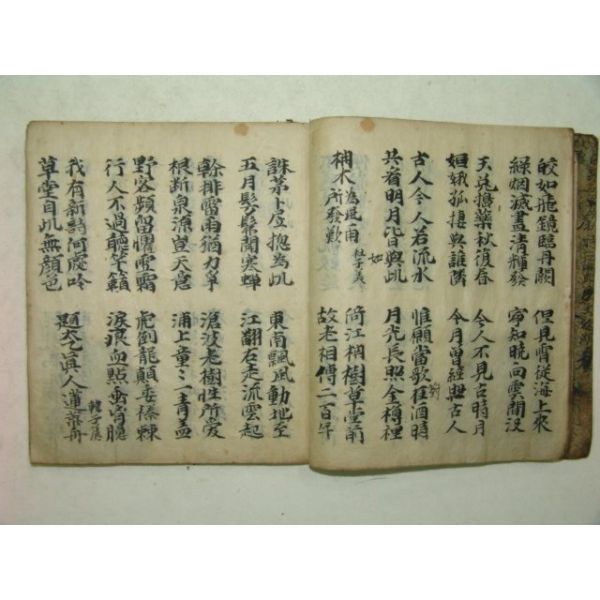 皎如飛鏡臨丹闕
綠烟滅盡清輝發
但見宵從海上來
寧知曉向雲間沒
玉兎搗藥秋復春
姮娥孤捿與誰隣
今人不見古時月
今月曾經照古人
古人今人若流水
共看明月皆與此
如
惟願當歌 酒時
對
月光長照金樽裡
枏木為風雨所發歎
杜子美
倚江枏樹草堂前
故老相傳二百年
誅茅卜居揔為此
五月髣髴聞寒蟬
東南飄風動地至
江翻石走流雲起
幹排雷雨猶力爭
根断泉源豈天意
滄波老樹性所愛
浦上童〻一青盖
野客頻留懼雪霜
行人不過聽竽籟
虎倒龍顛委榛棘
淚痕血點垂胷臆
我有新詩何處吟
草堂自此無顏色
題太乙真人蓮葉舟
韓子蒼